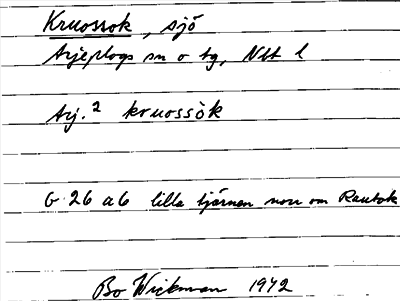 Kruossok, sjö
Arjeplogs sn o tg, Nbt l
Arj.² kruossòk
G 26 a6 lilla tjärnen norr om Rautok
Bo Wickman 1942